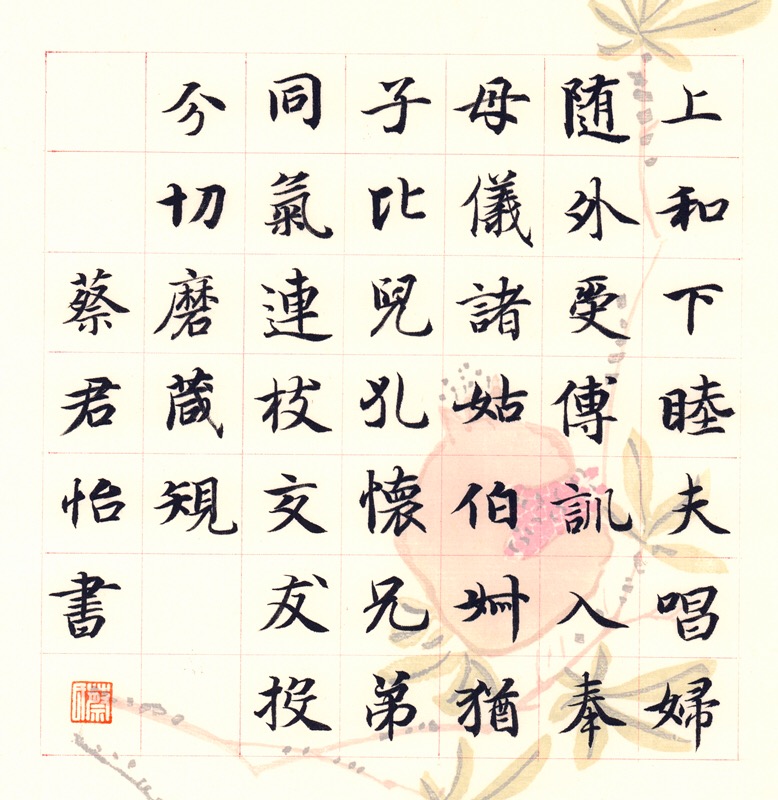 上和下睦夫唱婦
随外受傅訓入奉
母儀諸姑伯叔猶
子比兒孔懷兄弟
同氣連枝交友投
分切磨葴䂓
蔡君怡書